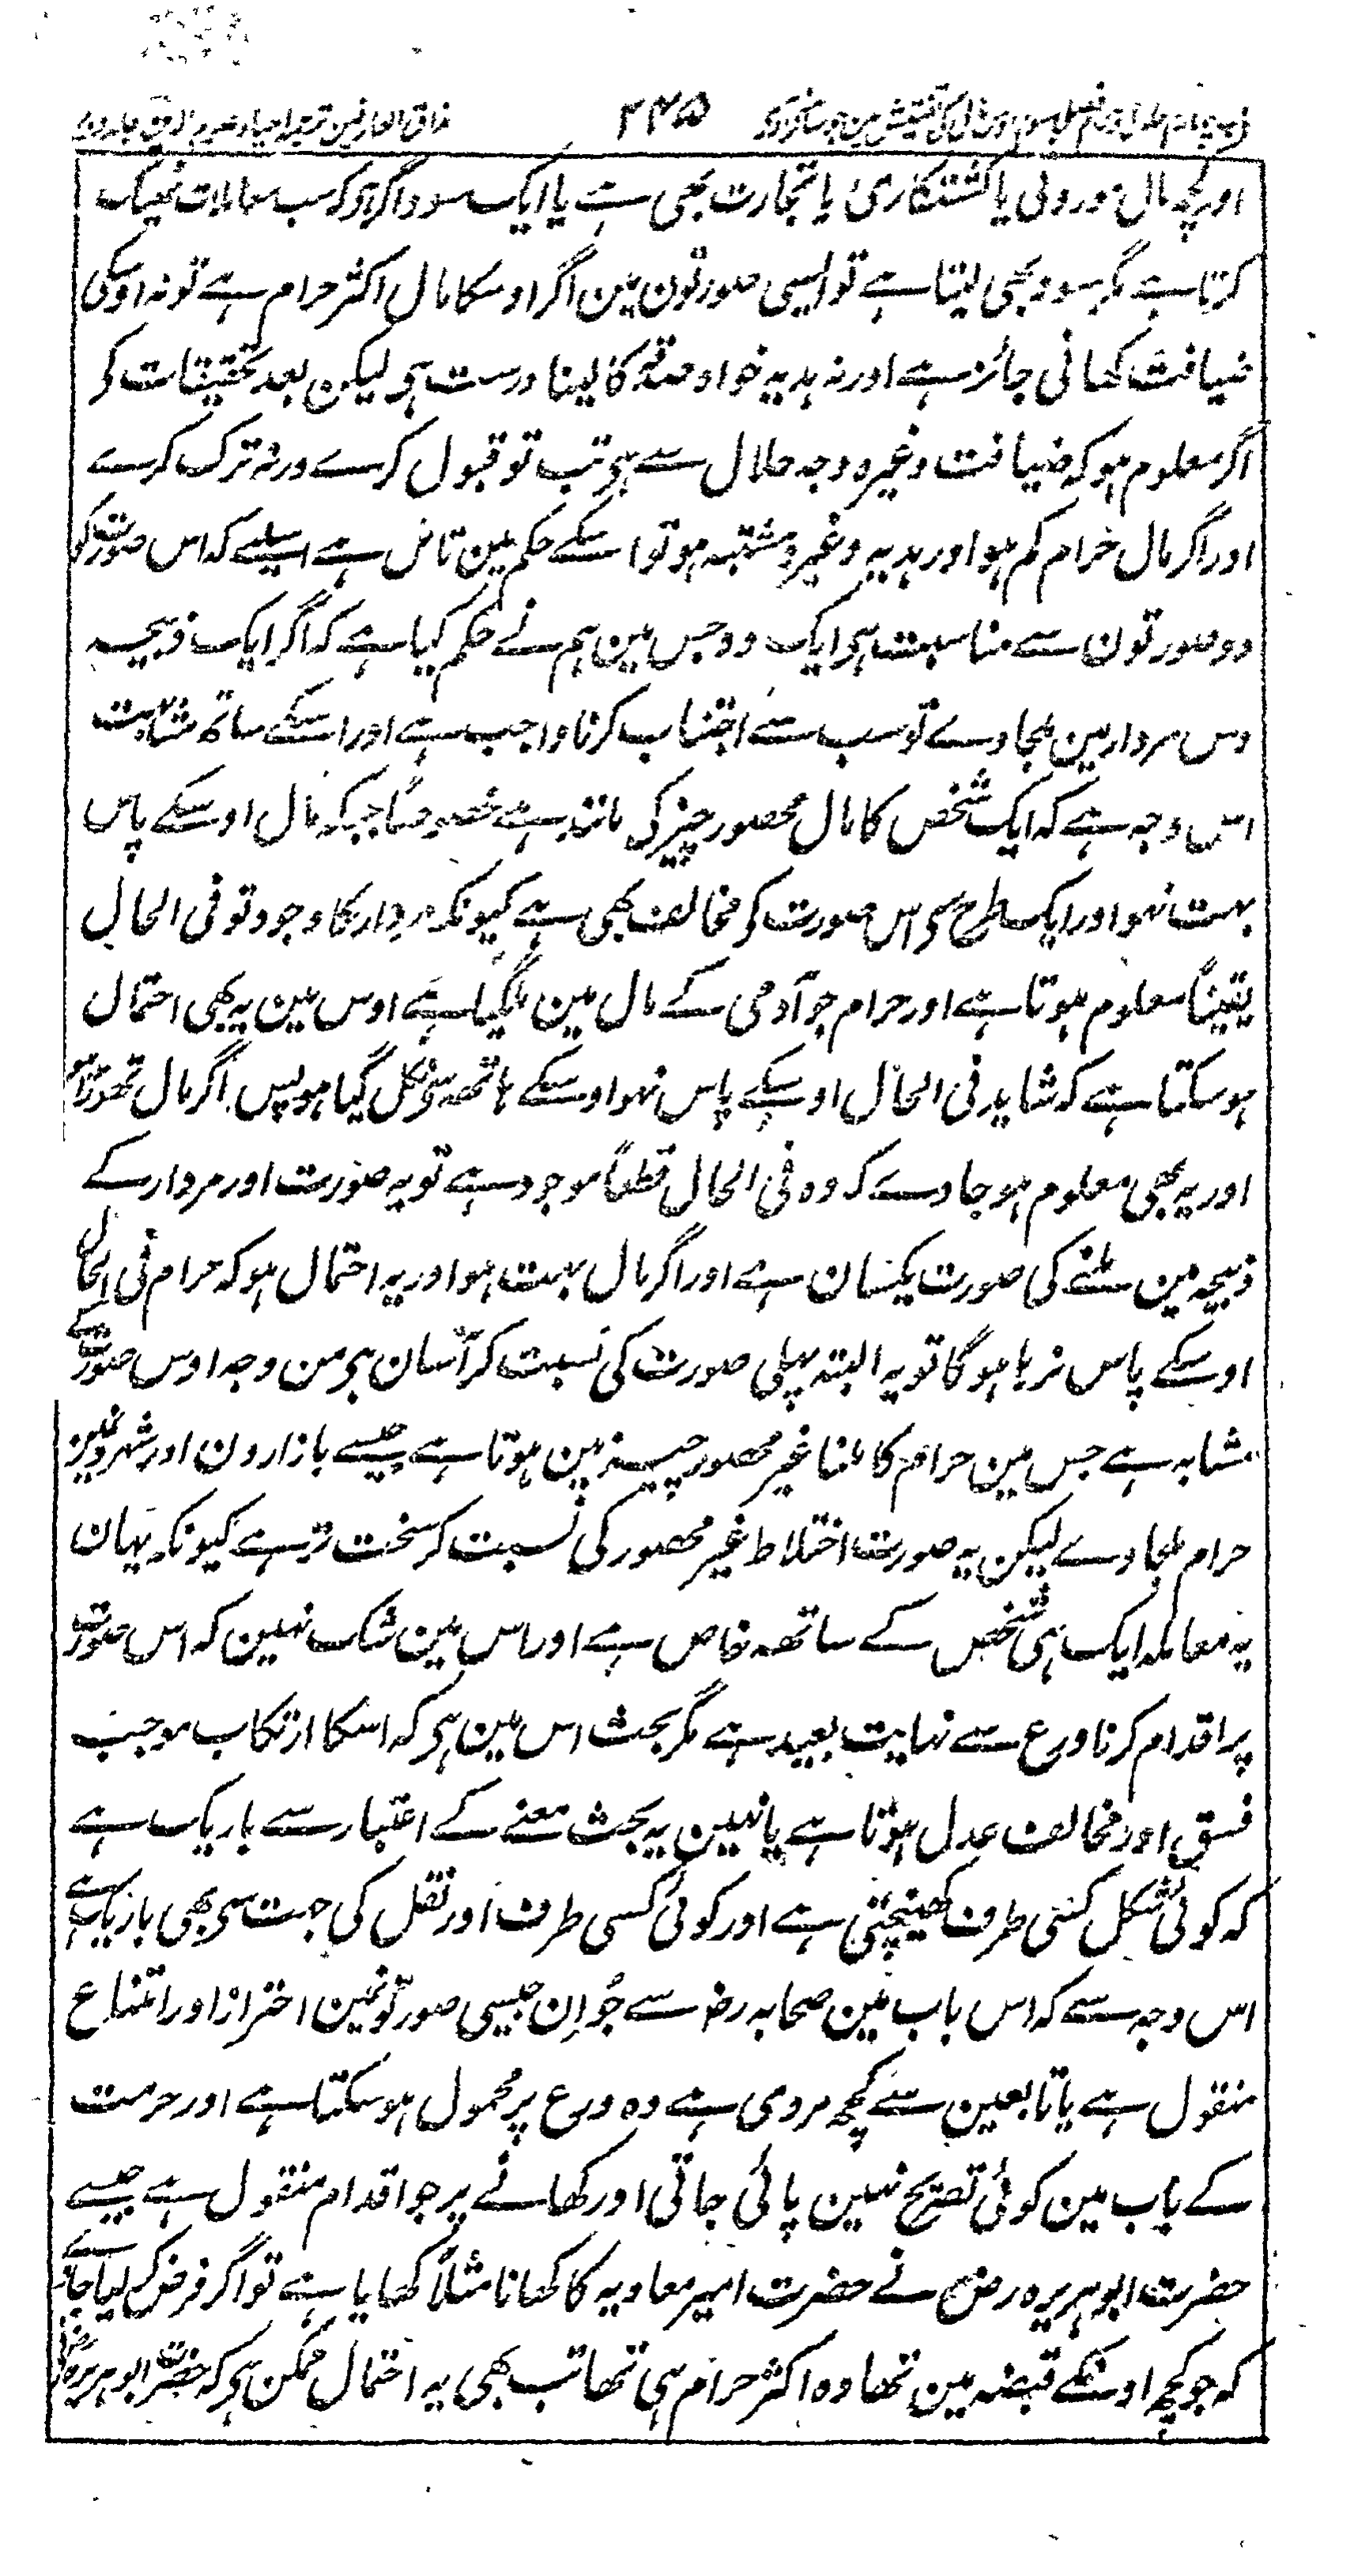 ۲۴۵ مذاق العارفین ترجمہ احیاء علوم الدین جلد دوم
اور کچھ مال موروثی یا کشتکاری یا تجارت بھی ہے یا ایک سوداگر ہی کہ سب معاملات ٹھیک
کرتا ہے مگر سود بھی لیتا ہے تو ایسی صورتون مین اگر اوسکا مال اکثر حرام ہے تو نہ اوسکی
ضیافت کھانی جائز ہے اور نہ ہدیہ خواہ صدقہ کا لینا درست ہی لیکن بعد تحقیقات کی
اگر معلوم ہو کہ ضیافت وغیرہ وجہ حلال سے ہی تب تو قبول کرے ورنہ ترک کرے
اور اگر مال حرام کم ہو اور ہدیہ وغیرہ مشتبہ ہو تو اسکے حکم مین تامل ہے اسلیے کہ اس صورت کو
دو صورتون سے مناسبت ہی ایک وہ جس مین ہم نے حکم کیا ہے کہ اگر ایک ذبیحہ
دس مردار مین ملجاوے تو سب سے اجتناب کرنا واجب ہے اور اسکے ساتھ مشابہت
اس وجہ ہے کہ ایک شخص کا مال محصور چیز کی مانند ہے خصوصاً جبکہ مال اوسکے پاس
بہت نہو اور ایک طرح سی اس صورت کی مخالف بھی ہے کیونکہ مردار کا وجود تو فی الحال
یقیناً معلوم ہوتا ہے اور حرام جو آدمی کے مال مین ملگیا ہے اوس مین یہ بھی احتمال
ہو سکتا ہے کہ شاید فی الحال اوسکے پاس نہو اوسکے ہاتھ سی نکل گیا ہو پس اگر مال تھوڑا ہو
اور یہ بھی معلوم ہو جاوے کہ وہ فی الحال قطعاً موجود ہے تو یہ صورت اور مردار کے
ذبیحہ مین ملنے کی صورت یکسان ہے اور اگر مال بہت ہو اور یہ احتمال ہو کہ حرام فی الحال
اوسکے پاس نرہا ہوگا تو یہ البتہ پہلی صورت کی نسبت کر آسان ہی من وجہ اوس صورت کے
مشابہ ہے جس مین حرام کا ملنا غیر محصور چیز مین ہوتا ہے جیسے بازارون اور شہرونمین
حرام ملجاوے لیکن یہ صورت اختلاط غیر محصور کی نسبت کر سخت تر ہے کیونکہ یہان
یہ معاملہ ایک ہی شخص کے ساتھ خاص ہے اور اس مین شک نہین کہ اس صورت
پر اقدام کرنا ورع سے نہایت بعید ہے مگر بحث اس مین ہی کہ اسکا ارتکاب موجب
فسق اور مخالف عدل ہوتا ہے یا نہین یہ بحث معنے کے اعتبار سے باریک ہے
کہ کوئی شکل کسی طرف کھینچتی ہے اور کوئی کسی طرف اور نقل کی جہت سی بھی باریک ہے
اس وجہ سے کہ اس باب مین صحابہ رض سے جو ان جیسی صورتونمین احتراز اور امتناع
منقول ہے یا تابعین سے کچھ مروی ہے وہ ورع پر محمول ہو سکتا ہے اور حرمت
کے باب مین کوئی تصریح نہین پائی جاتی اور کھانے پر جو اقدام منقول ہے جیسے
حضرت ابو ہریرہ رض نے حضرت امیر معاویہ کا کھانا مثلاً کھایا ہے تو اگر فرض کر لیا جائے
کہ جو کچھ اونکے قبضہ مین تھا وہ اکثر حرام ہی تھا تب بھی یہ احتمال ممکن ہی کہ حضرت ابو ہریرہ